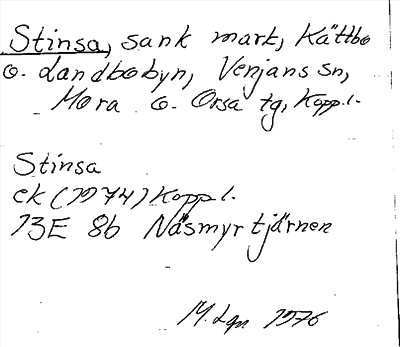 Stinsa, sank mark, Kättbo
o. Landbobyn, Venjans sn,
Mora o. Orsa tg, Kopp.l.
Stinsa
ek (1974) Kopp.l.
13E 8b Näsmyrtjärnen
M. Lgn 1976